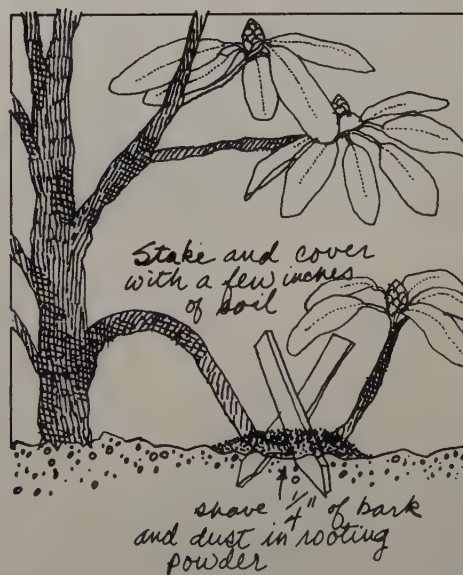 Stake and cover
with a few inches
of soil
shave 1/4" of bark
and dust in rooting
powder